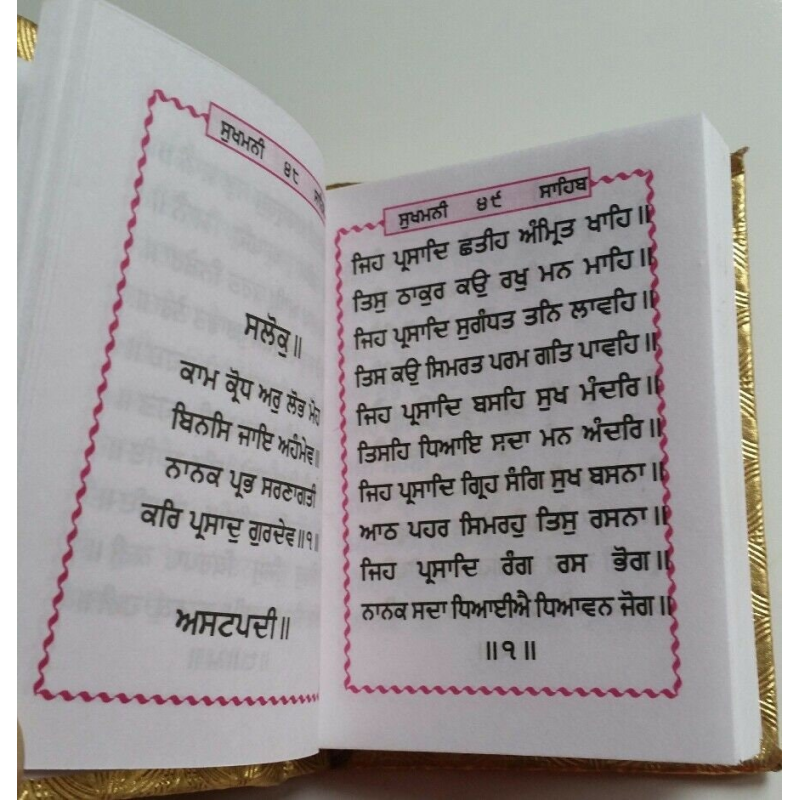 ਸੁਖਮਨੀ ੪੮
ਸਲੋਕੁ॥
ਕਾਮ ਕ੍ਰੋਧ ਅਰੁ ਲੋਭ ਮੋਹ
ਬਿਨਸਿ ਜਾਇ ਅਹੰਮੇਵ॥
ਨਾਨਕ ਪ੍ਰਭ ਸਰਣਾਗਤੀ
ਕਰਿ ਪ੍ਰਸਾਦੁ ਗੁਰਦੇਵ॥੧॥
ਅਸਟਪਦੀ॥
ਸੁਖਮਨੀ ੪੯ ਸਾਹਿਬ
ਜਿਹ ਪ੍ਰਸਾਦਿ ਛਤੀਹ ਅੰਮ੍ਰਿਤ ਖਾਹਿ॥
ਤਿਸੁ ਠਾਕੁਰ ਕਉ ਰਖੁ ਮਨ ਮਾਹਿ॥
ਜਿਹ ਪ੍ਰਸਾਦਿ ਸੁਗੰਧਤ ਤਨਿ ਲਾਵਹਿ॥
ਤਿਸ ਕਉ ਸਿਮਰਤ ਪਰਮ ਗਤਿ ਪਾਵਹਿ॥
ਜਿਹ ਪ੍ਰਸਾਦਿ ਬਸਹਿ ਸੁਖ ਮੰਦਰਿ॥
ਤਿਸਹਿ ਧਿਆਇ ਸਦਾ ਮਨ ਅੰਦਰਿ॥
ਜਿਹ ਪ੍ਰਸਾਦਿ ਗ੍ਰਿਹ ਸੰਗਿ ਸੁਖ ਬਸਨਾ॥
ਆਠ ਪਹਰ ਸਿਮਰਹੁ ਤਿਸੁ ਰਸਨਾ॥
ਜਿਹ ਪ੍ਰਸਾਦਿ ਰੰਗ ਰਸ ਭੋਗ॥
ਨਾਨਕ ਸਦਾ ਧਿਆਈਐ ਧਿਆਵਨ ਜੋਗ॥
॥੧॥